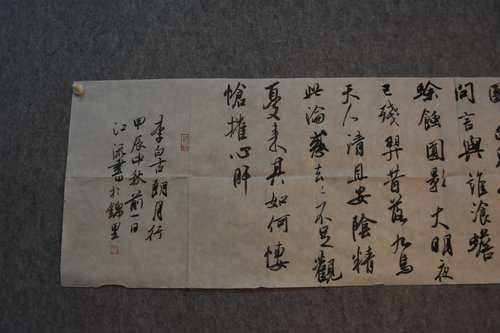 問言與誰飡蟾
蜍蝕圓影大明夜
已殘羿昔落九烏
天人清且安陰精
此淪惑去々不足觀
憂来其如何悽
愴摧心肝
李白古朗月行
甲辰中秋前一日
江書於錦里